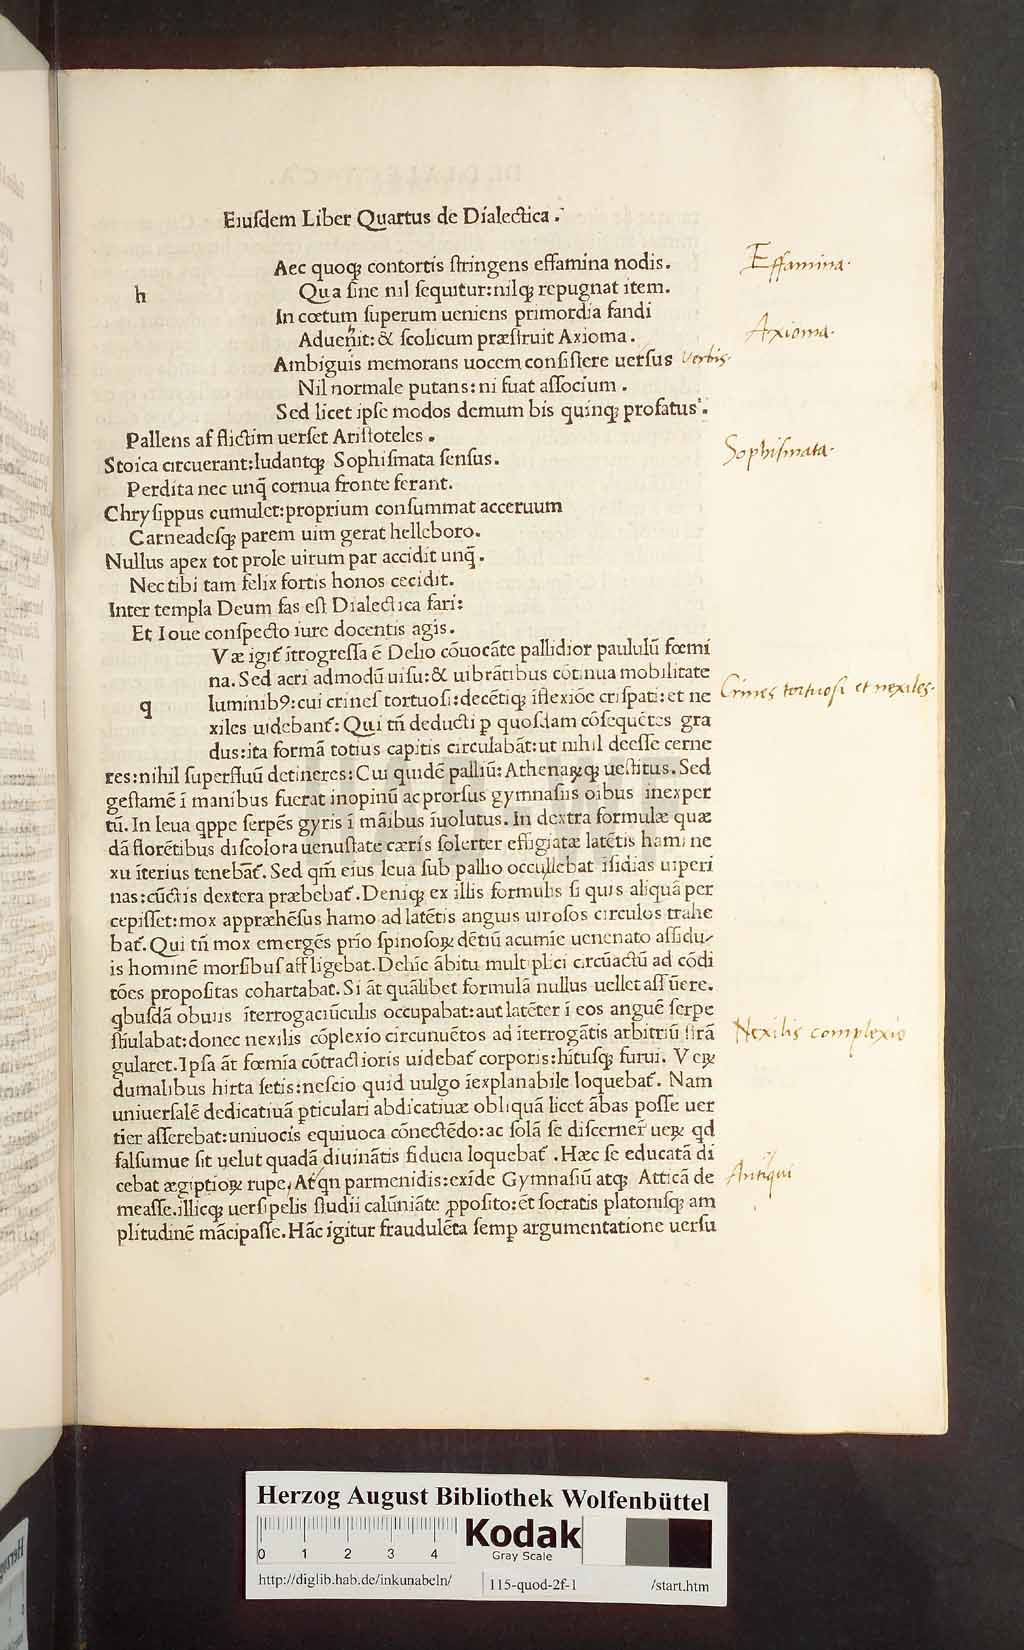 Eiuſdem Liber Quartus de Dialectica.
h
Aec quoqꝫ contortis ſtringens effamina nodis.
Qua ſine nil ſequitur:nilqꝫ repugnat item.
In cœtum ſuperum ueniens primordia fandi
Aduehit:& ſcolicum præſtruit Axioma.
Ambiguis memorans uocem conſiſtere uerſus
Nil normale putans:ni fuat aſſocium.
Sed licet ipſe modos demum bis quinqꝫ profatus.
Pallens afflictim uerſet Ariſtoteles.
Stoica circuerant:ludantqꝫ Sophiſmata ſenſus.
Perdita nec unq̃ cornua fronte ferant.
Chryſippus cumulet:proprium conſummat acceruum
Carneadeſqꝫ parem uim gerat helleboro.
Nullus apex tot prole uirum par accidit unq̃.
Nec tibi tam felix fortis honos cecidit.
Inter templa Deum fas eſt Dialectica fari:
Et Ioue conſpecto iure docentis agis.
q
Væ igit᷑ ĩtrogreſſa ẽ Delio cõuocãte pallidior paululũ fœmi
na. Sed acri admodũ uiſu:& uibrãtibus cõtinua mobilitate
luminibꝯ:cui crineſ tortuoſi:decẽtiqꝫ ĩflexiõe criſpati:et ne
xiles uidebant᷑: Qui tñ deducti ꝑ quoſdam cõſequẽtes gra
dus:ita formã totius capitis circulabãt:ut nihil deeſſe cerne
res:nihil ſuperfluũ detineres: Cui quidẽ palliũ: Athenaꝝqꝫ ueſtitus. Sed
geſtamẽ ĩ manibus fuerat inopinũ ac prorſus gymnaſiis oibus inexper
tũ. In leua qppe ſerpẽs gyris ĩ mãibus ĩuolutus. In dextra formulæ quæ
dã florẽtibus diſcolora uenuſtate cærís ſolerter effigiatæ latẽtis hami ne
xu ĩterius tenebãt᷑. Sed qm̃ eius leua ſub pallio occullebat ĩſidias uiperi
nas:cũctis dextera præbebat᷑. Deniqꝫ ex illis formulis ſi quis aliquã per
cepiſſet:mox appræhẽſus hamo ad latẽtis anguis uiroſos circulos trahe
bat᷑. Qui tñ mox emergẽs prío ſpinoſoꝝ dẽtiũ acumíe uenenato aſſidu-
is hominẽ morſibuſ affligebat. Dehíc ãbitu multiplici circũactũ ad cõdi
tões propoſitas cohartabat. Si ãt quãlibet formulã nullus uellet aſſũere.
qbuſdã obuiis ĩterrogaciũculis occupabat:aut latẽter ĩ eos anguẽ ſerpe
ſtiulabat:donec nexilis cõplexio circunuẽtos ad ĩterrogãtis arbitriũ ſtrã
gularet. Ipſa ãt fœmía cõtractioris uidebat᷑ corporis:hítuſqꝫ furui. Veꝝ
dumalibus hirta ſetis:neſcio quid uulgo ĩexplanabile loquebat᷑. Nam
uniuerſalẽ dedicatiuã ꝑticulari abdicatiuæ obliquã licet ãbas poſſe uer
tier aſſerebat:uniuocis equiuoca cõnectẽdo:ac ſolã ſe diſcerner̃ ueꝝ qd
falſumue ſit uelut quadã diuinãtis fiducia loquebat᷑. Hæc ſe educatã di
cebat ægiptioꝝ rupe, Atqn parmenidis:exíde Gymnaſiũ atqꝫ Atticã de
meaſſe.illicqꝫ uerſipelis ſtudii calũniãte ꝓpoſito:ẽt ſocratis platoniſqꝫ am
plitudinẽ mãcipaſſe. Hãc igitur fraudulẽta ſemꝑ argumentatione uerſu
Effamina.
Axioma.
verbis.
Sophiſmata.
Crines tortuoſi et nexiles.
Nexilis complexio
Antiqui
Herzog August Bibliothek Wolfenbüttel
0 1 2 3 4
Kodak
Gray Scale
http://diglib.hab.de/inkunabeln/
115-quod-2f-1
/start.htm